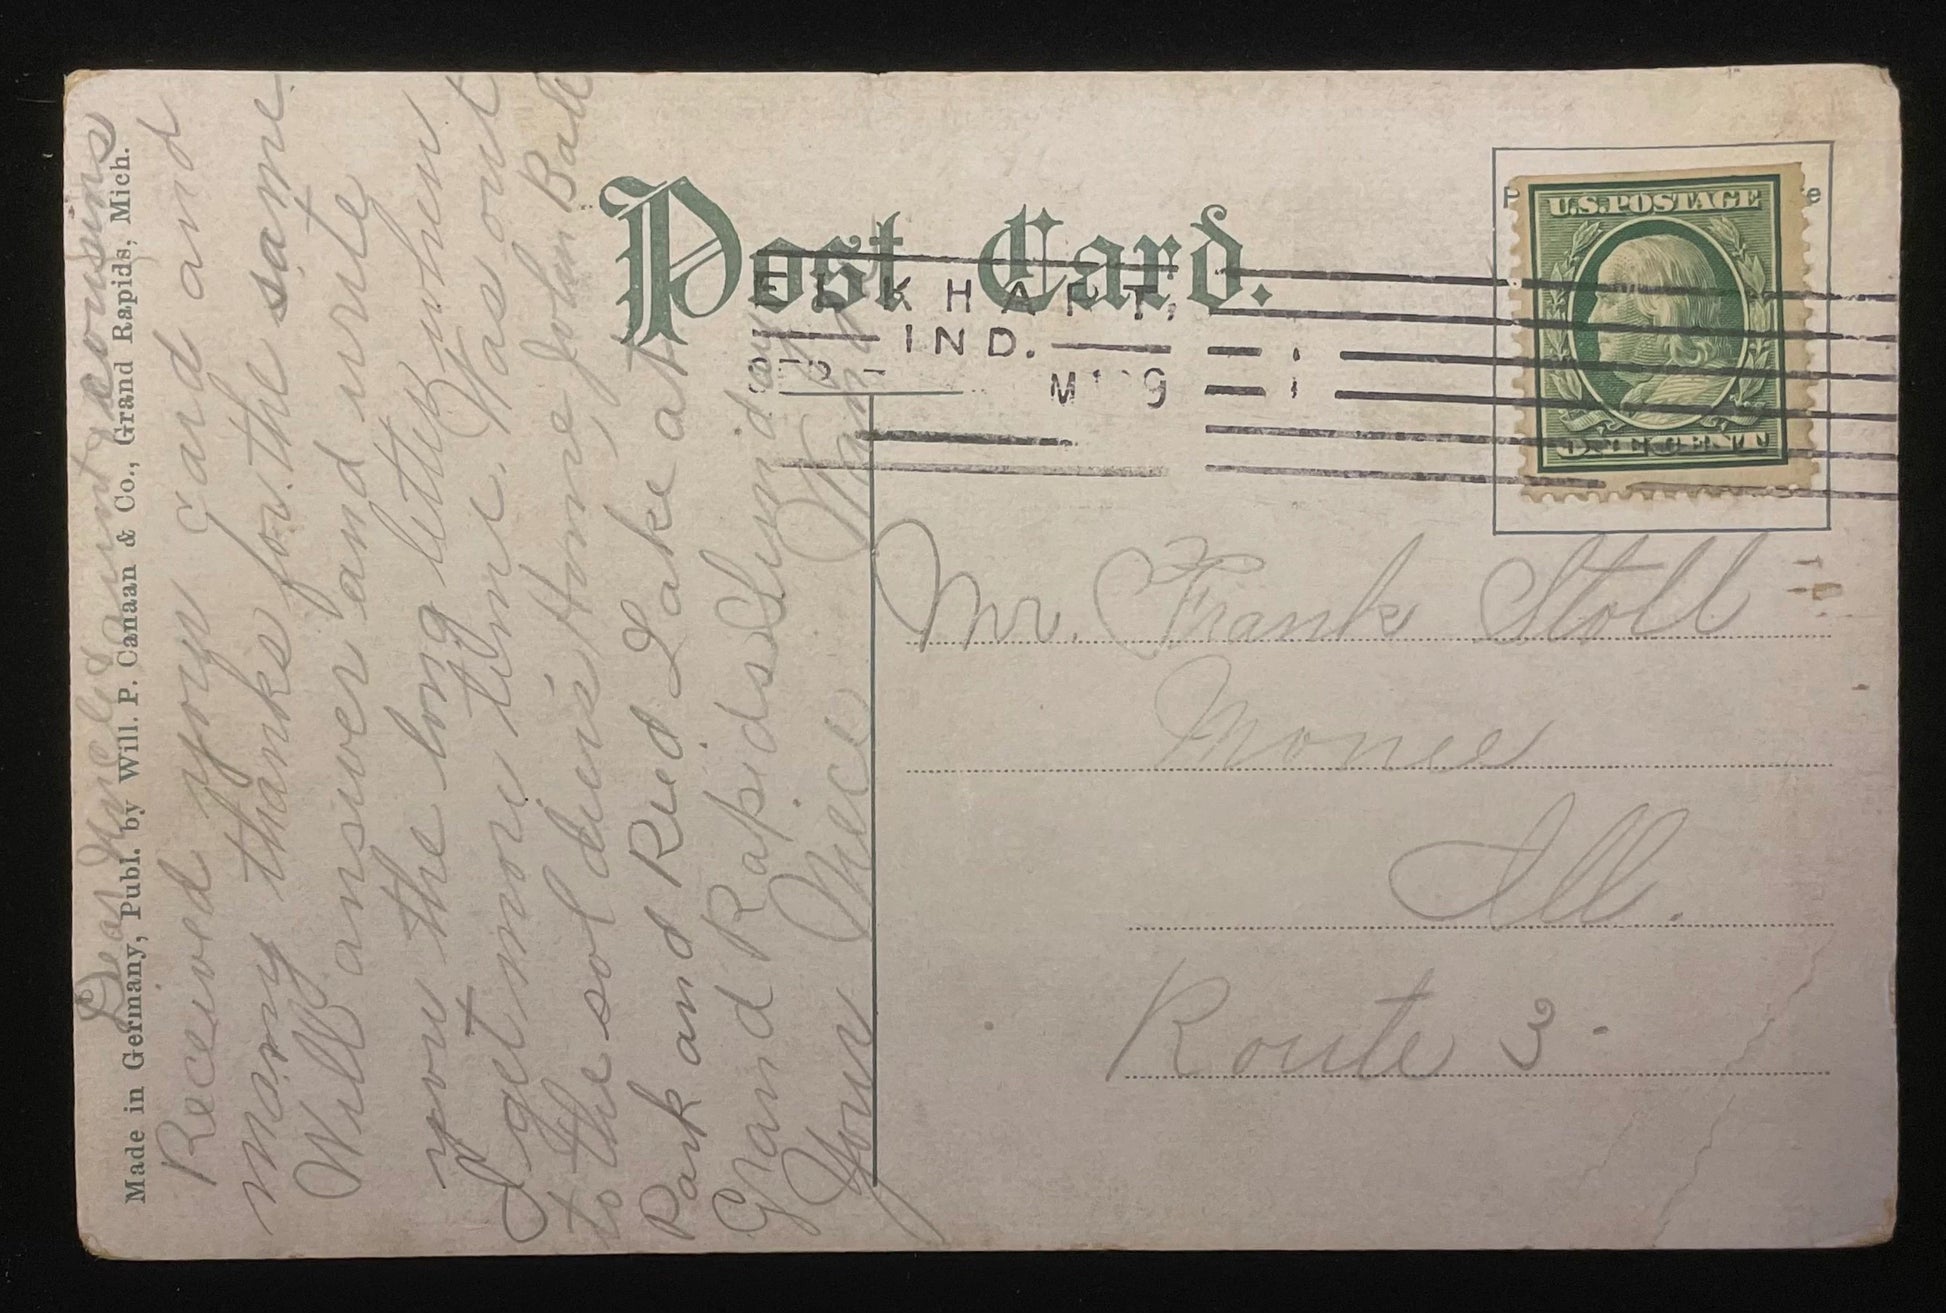 Made in Germany, Publ. by Will. P. Canaan & Co., Grand Rapids, Mich.
Dear Uncle Aunt & cousins
Received your card and
many thanks for the same
Will answer and write
you the long letter when
I get more time. Was out
to the soldiers Home, John Ball
Park and Ried Lake at
Grand Rapids Sunday
Your Niece
Post Card.
ELKHART,
IND.
U.S.POSTAGE
Mr. Frank Stoll
Monee
Ill.
Route 3.